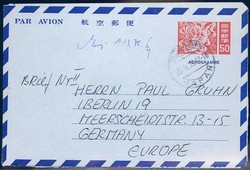 PAR AVION 航空郵便
日本郵便
50
AEROGRAMME
JAPAN
BRIEF NY!!
HERREN PAUL GRUHN
1 BERLIN 19
MEERSCHEIDTSTR. 13-15
GERMANY
EUROPE